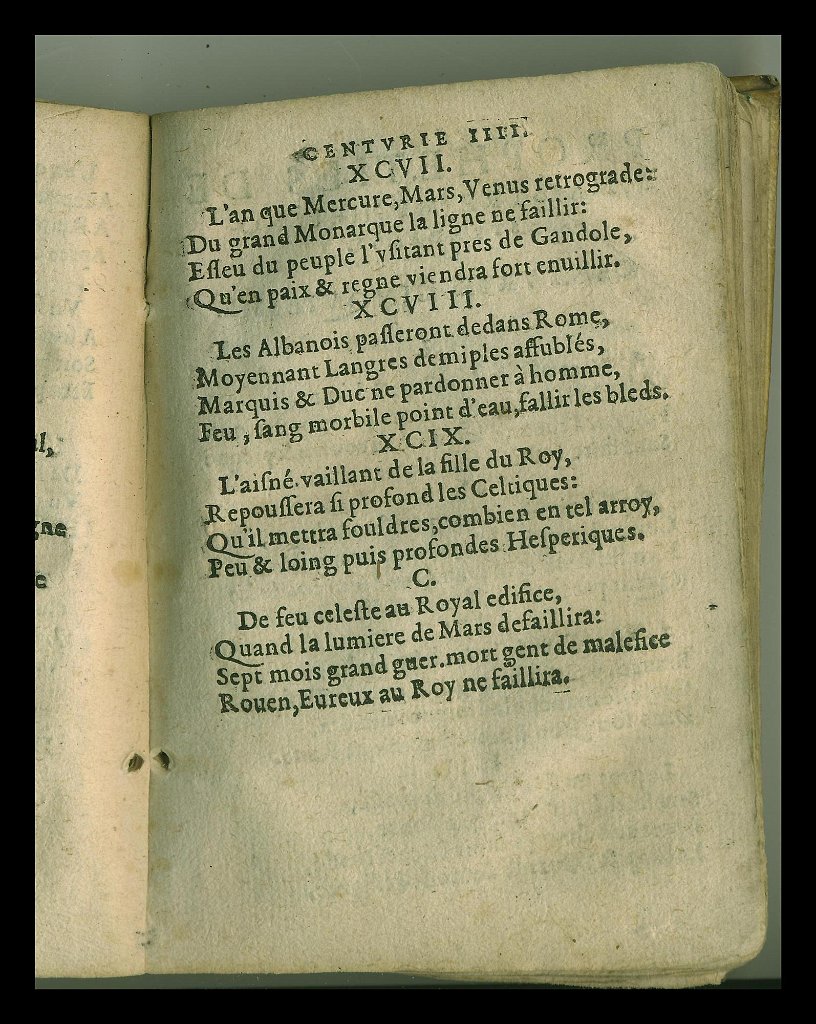 l,
gne
e
CENTVRIE IIII.
XCVII.
L'an que Mercure, Mars, Venus retrograde:
Du grand Monarque la ligne ne faillir:
Eſleu du peuple l'vſitant pres de Gandole,
Qu'en paix & regne viendra fort enuillir.
XCVIII.
Les Albanois paſſeront dedans Rome,
Moyennant Langres demiples affublés,
Marquis & Duc ne pardonner à homme,
Feu, ſang morbile point d'eau, fallir les bleds.
XCIX.
L'aiſné vaillant de la fille du Roy,
Repouſſera ſi profond les Celtiques:
Qu'il mettra fouldres, combien en tel arroy,
Peu & loing puis profondes Heſperiques.
C.
De feu celeſte au Royal edifice,
Quand la lumiere de Mars defaillira:
Sept mois grand guer. mort gent de malefice
Rouen, Eureux au Roy ne faillira.